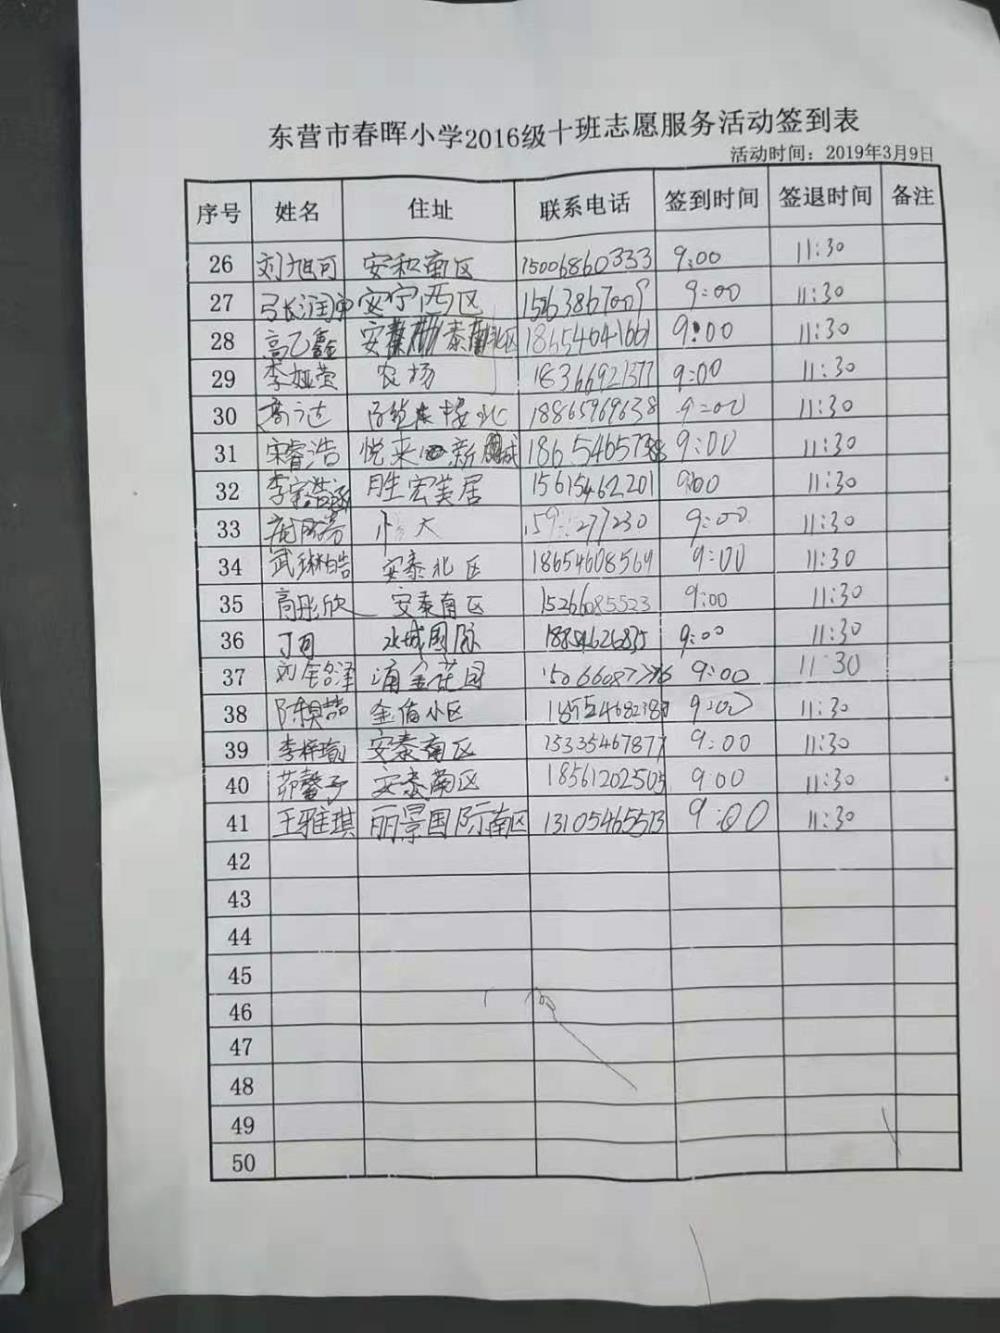 东营市春晖小学2016级十班志愿服务活动签到表
活动时间：2019年3月9日
序号 姓名 住址 联系电话 签到时间 签退时间 备注
26 刘旭可 安和南区 15006860333 9:00 11:30
27 安宁西区 15263867009 9:00 11:30
28 高乙鑫 9:00 11:30
29 李娅莹 农场 18366921377 9:00 11:30
30 18865969638 9:00 11:30
31 宋睿浩 悦来 新城 9:00 11:30
32 胜宏美居 15615462201 9:00 11:30
33 9:00 11:30
34 武琳皓 安泰北区 18654608569 9:00 11:30
35 高彤欣 安泰南区 15266085523 9:00 11:30
36 丁可 水城国际 18854626835 9:00 11:30
37 刘铭泽 浦金花园 9:00 11:30
38 小区 9:00 11:30
39 李梓瑜 安泰南区 15335467877 9:00 11:30
40 茆馨予 安泰南区 18561202505 9:00 11:30
41 王雅琪 丽景国际南区 13105465513 9:00 11:30
42
43
44
45
46
47
48
49
50